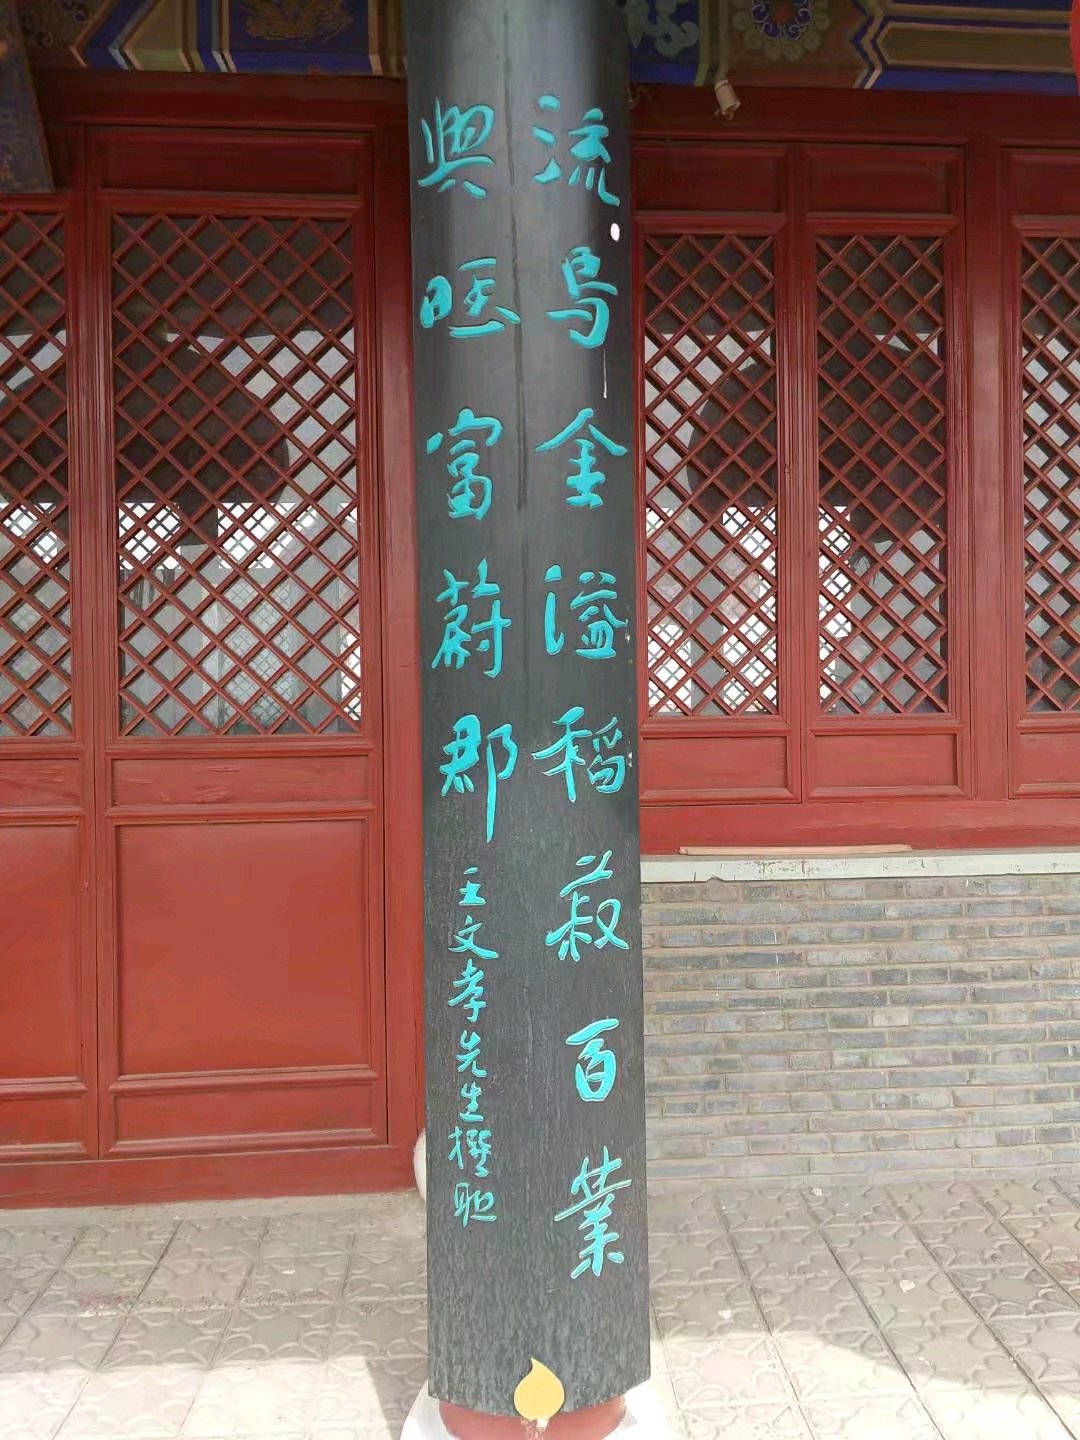 流烏金溢稻菽百業
興旺富蔚郡
王文孝先生撰聯